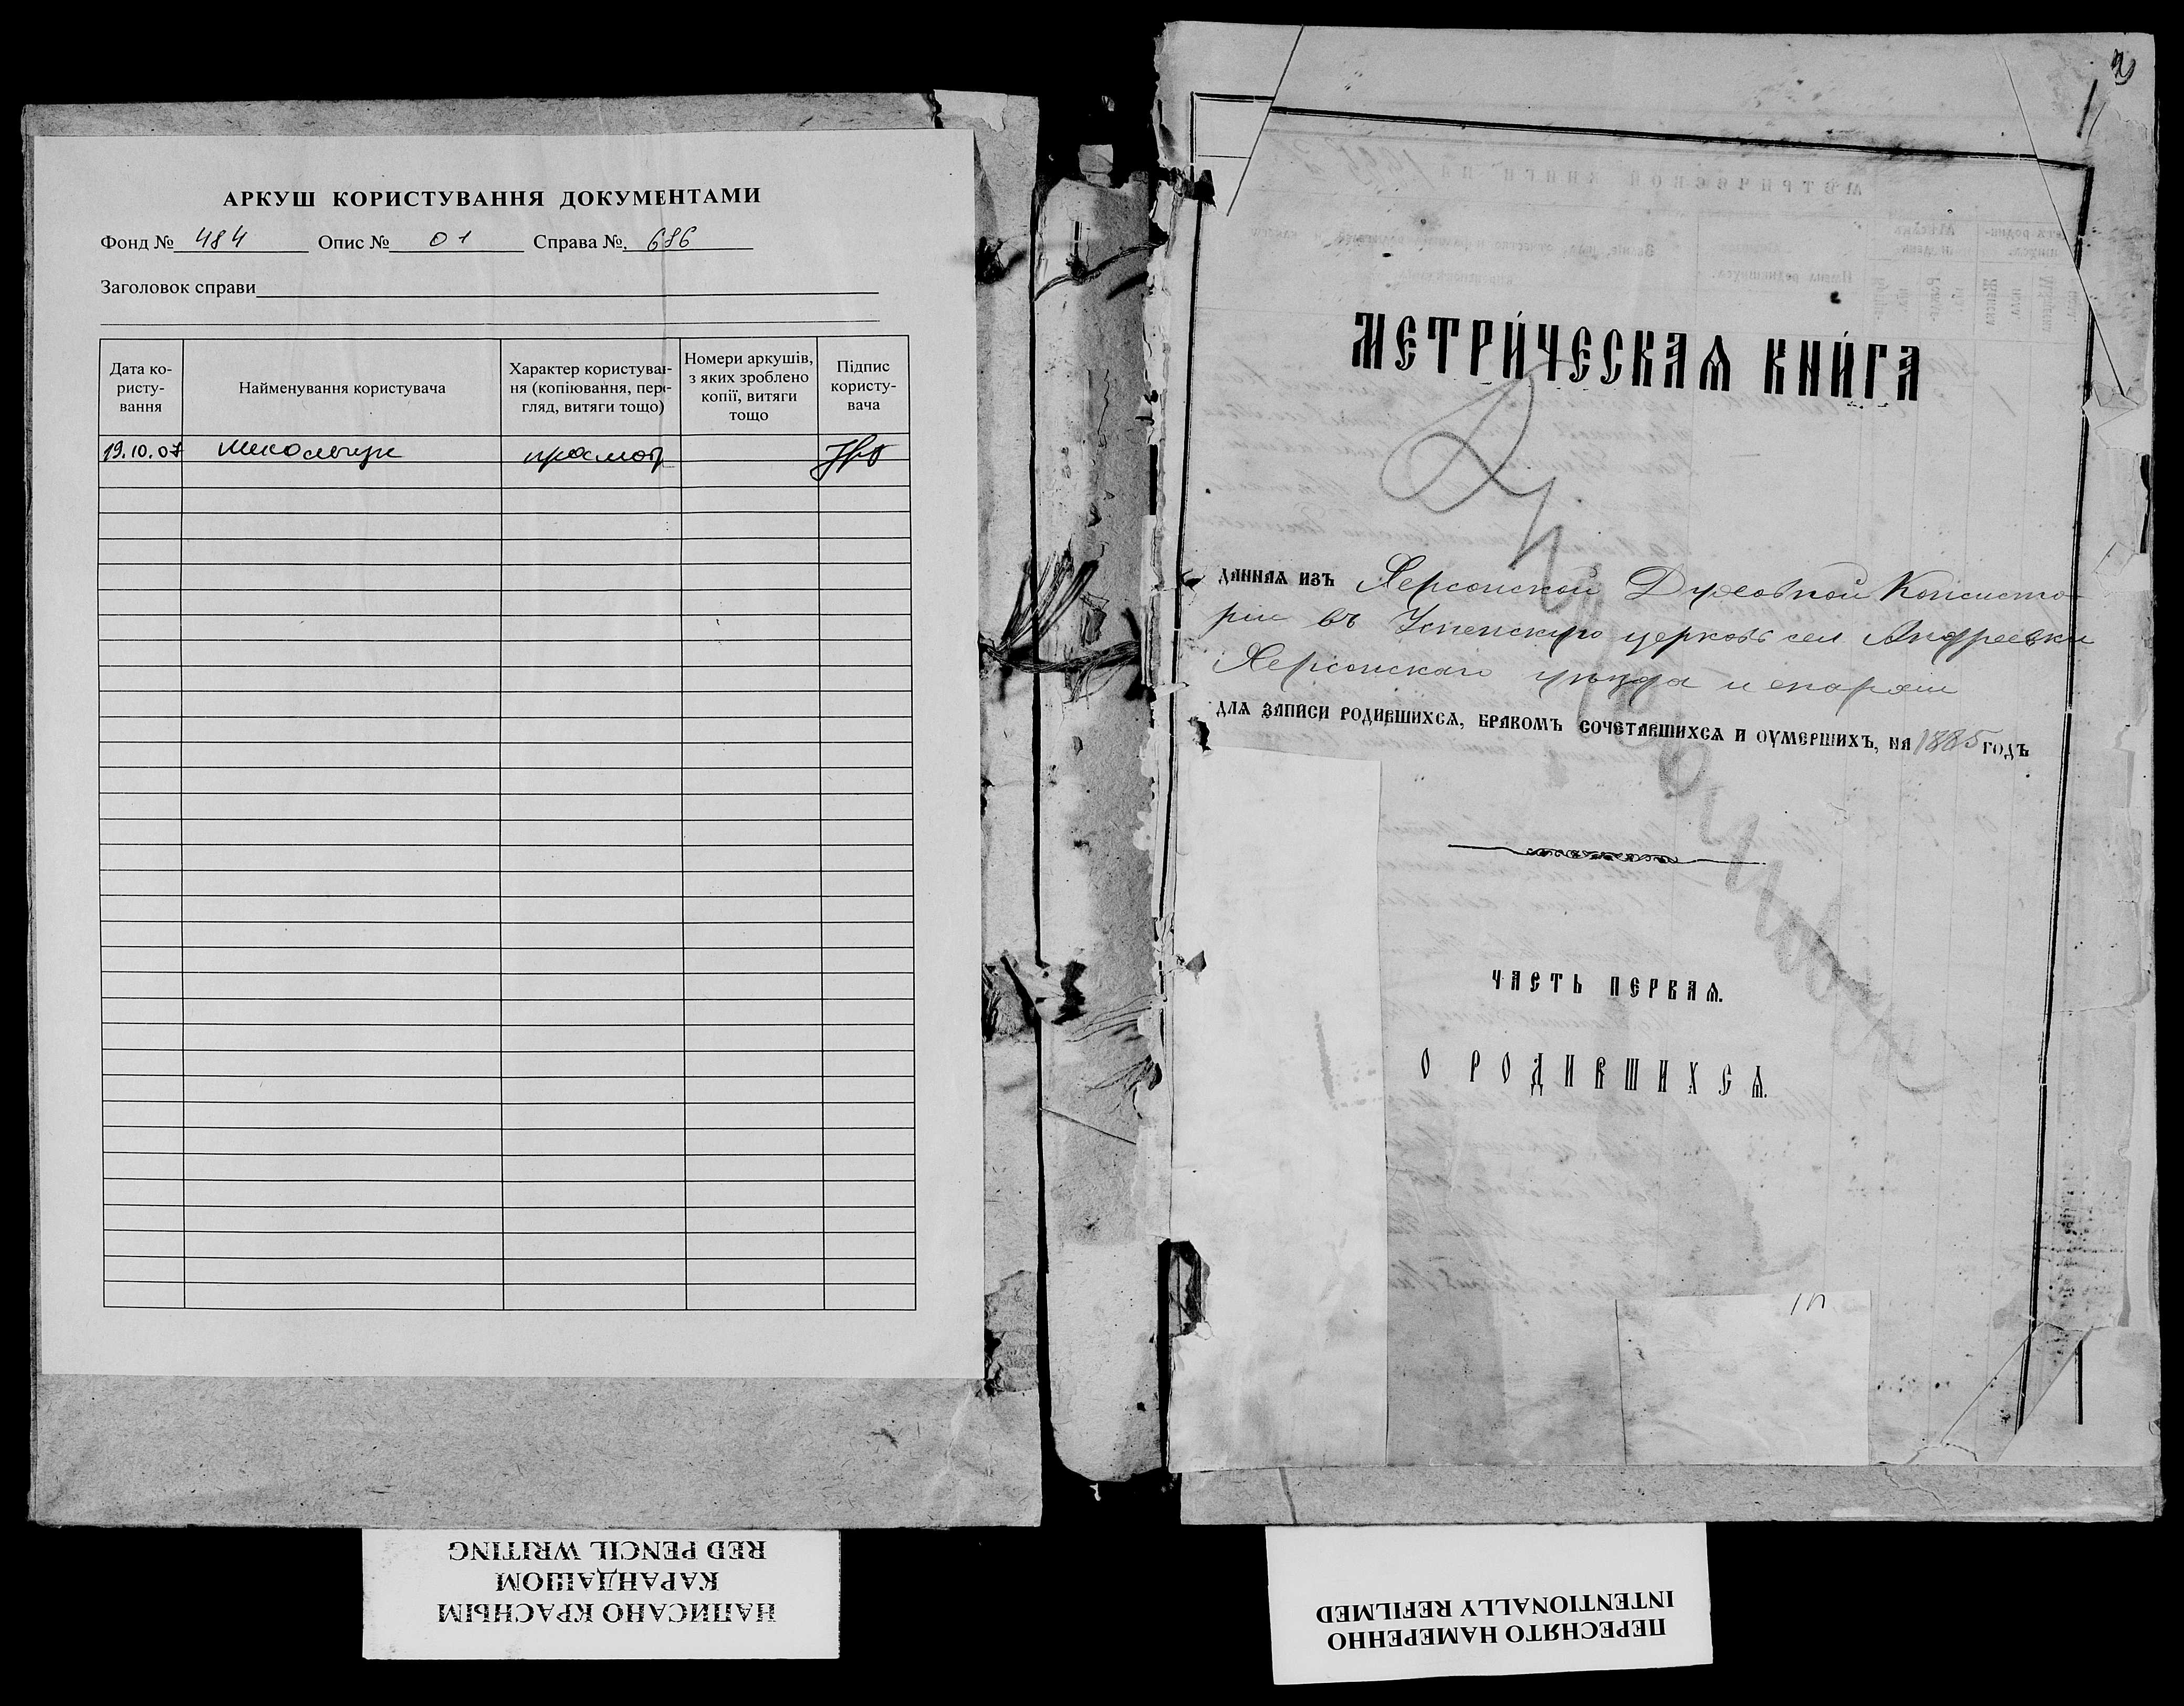 АРКУШ КОРИСТУВАННЯ ДОКУМЕНТАМИ
Фонд № 484 Опис № 01 Справа № 686
Заголовок справи
Дата ко-
ристу-
вання
Найменування користувача
Характер користуван-
ня (копіювання, пере-
гляд, витяги тощо)
Номери аркушів,
з яких зроблено
копії, витяги
тощо
Підпис
користу-
вача
19.10.07 просмотр
НАПИСАНО КРАСНЫМ
КАРАНДАШОМ
RED PENCIL WRITING
2
МЕТРИ́ЧЕСКАѦ КНИ́ГА
Дубликат
ДАННАѦ ИЗЪ Херсонской Духовной Консисто-
ріи въ Успенскую церковь сел. Андреевки
Херсонскаго уѣзда и епархіи
ДЛѦ ЗАПИСИ РОДИВШИХСѦ, БРАКОМЪ СОЧЕТАВШИХСѦ И ОУМЕРШИХЪ, НА 1885 ГОДЪ
ЧАСТЬ ПЕРВАѦ.
О РОДИВШИХСѦ.
ПЕРЕСНЯТО НАМЕРЕННО
INTENTIONALLY REFILMED